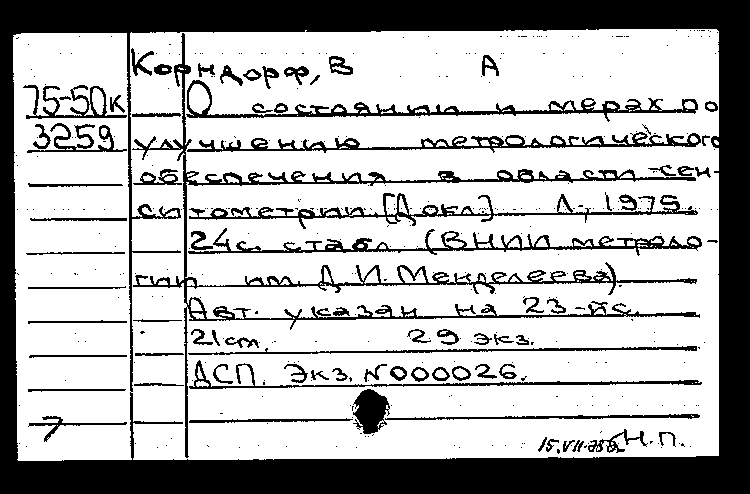 Корндорф, В А
75-50к О состоянии и мерах по
3259 улучшению метрологического
обеспечения в области сен-
ситометрии. [Докл.] Л., 1975.
24с. с табл. (ВНИИ метроло-
гии им. Д.И. Менделеева).
Авт. указан на 23-йс.
21см. 29 экз.
ДСП. Экз. №000026.
7
15.VII.75 Н.П.